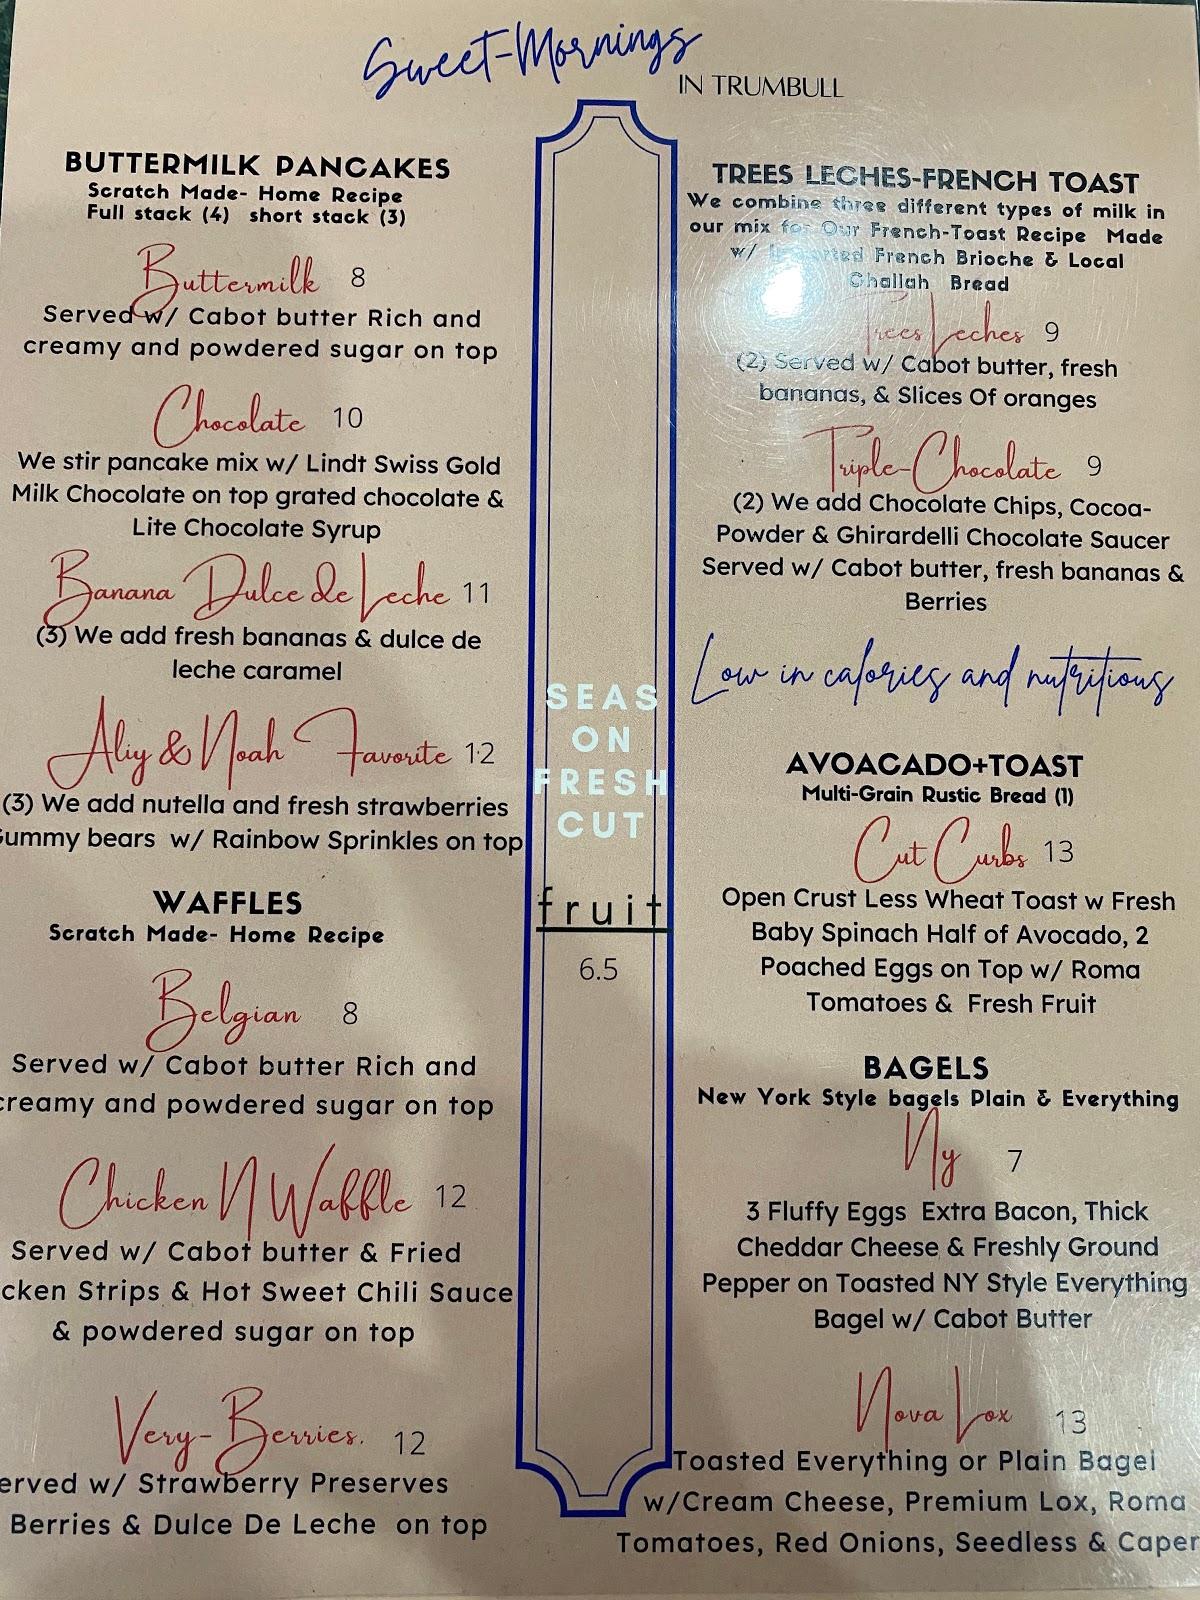 Sweet-Mornings
IN TRUMBULL
BUTTERMILK PANCAKES
Scratch Made- Home Recipe
Full stack (4) short stack (3)
Buttermilk 8
Served w/ Cabot butter Rich and
creamy and powdered sugar on top
Chocolate 10
We stir pancake mix w/ Lindt Swiss Gold
Milk Chocolate on top grated chocolate &
Lite Chocolate Syrup
Banana Dulce de Leche 11
(3) We add fresh bananas & dulce de
leche caramel
Aliy & Noah Favorite 12
(3) We add nutella and fresh strawberries
Gummy bears w/ Rainbow Sprinkles on top
WAFFLES
Scratch Made- Home Recipe
Belgian 8
Served w/ Cabot butter Rich and
creamy and powdered sugar on top
Chicken N Waffle 12
Served w/ Cabot butter & Fried
cken Strips & Hot Sweet Chili Sauce
& powdered sugar on top
Very-Berries. 12
erved w/ Strawberry Preserves
Berries & Dulce De Leche on top
SEAS
ON
FRESH
CUT
fruit
6.5
TREES LECHES-FRENCH TOAST
We combine three different types of milk in
our mix for Our French-Toast Recipe Made
w/ Imported French Brioche & Local
Challah Bread
Trees Leches 9
(2) Served w/ Cabot butter, fresh
bananas, & Slices Of oranges
Triple-Chocolate 9
(2) We add Chocolate Chips, Cocoa-
Powder & Ghirardelli Chocolate Saucer
Served w/ Cabot butter, fresh bananas &
Berries
Low in calories and nutritious
AVOACADO+TOAST
Multi-Grain Rustic Bread (1)
Cut Curbs 13
Open Crust Less Wheat Toast w Fresh
Baby Spinach Half of Avocado, 2
Poached Eggs on Top w/ Roma
Tomatoes & Fresh Fruit
BAGELS
New York Style bagels Plain & Everything
Ny 7
3 Fluffy Eggs Extra Bacon, Thick
Cheddar Cheese & Freshly Ground
Pepper on Toasted NY Style Everything
Bagel w/ Cabot Butter
Nova Lox 13
Toasted Everything or Plain Bagel
w/Cream Cheese, Premium Lox, Roma
Tomatoes, Red Onions, Seedless & Caper